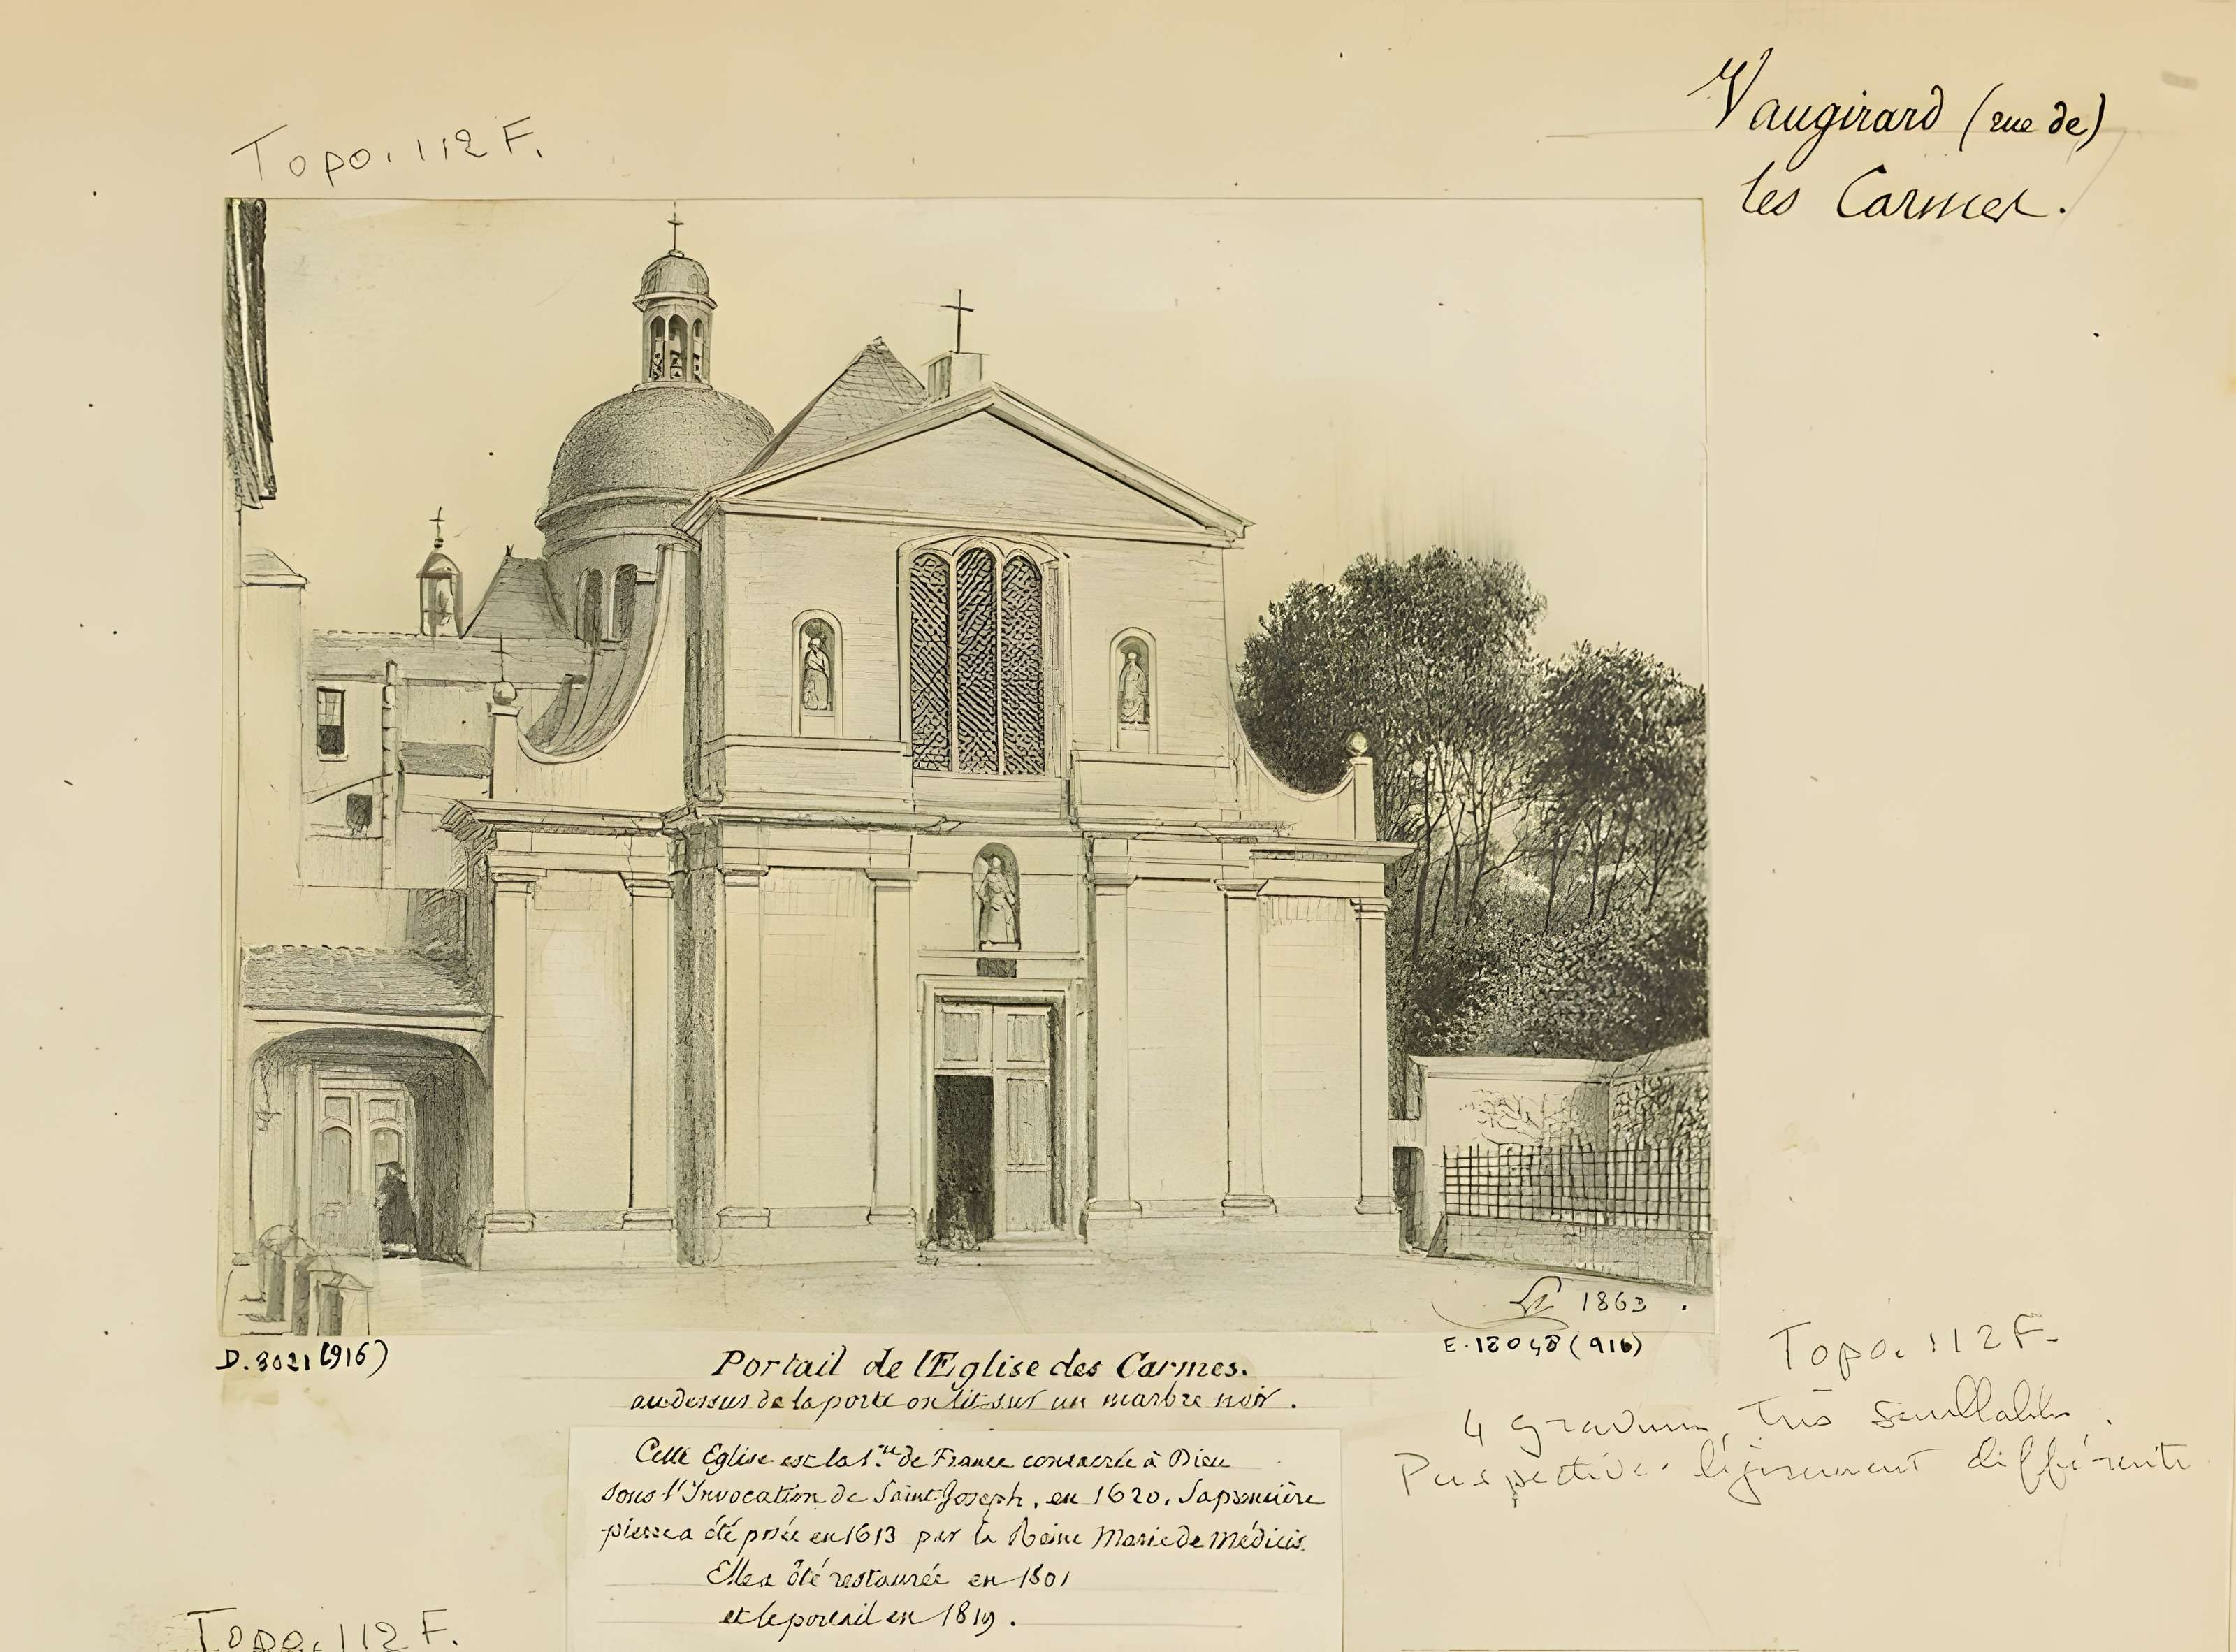 Vaugirard (rue de)
les Carmes.
Topo. 112 F.
1863.
D. 8021 (916)
E. 18048 (916)
Portail de l'Eglise des Carmes.
au dessus de la porte on lit sur un marbre noir.
Topo. 112 F.
4 gravures très semblables.
Perspective légèrement différente
Cette Eglise est la 1.re de France consacrée à Dieu
sous l'Invocation de Saint Joseph, en 1620. Sa première
pierre a été posée en 1613 par la Reine Marie De Médicis.
Elle a été restaurée en 1801
et le portail en 1819.
Topo. 112 F.